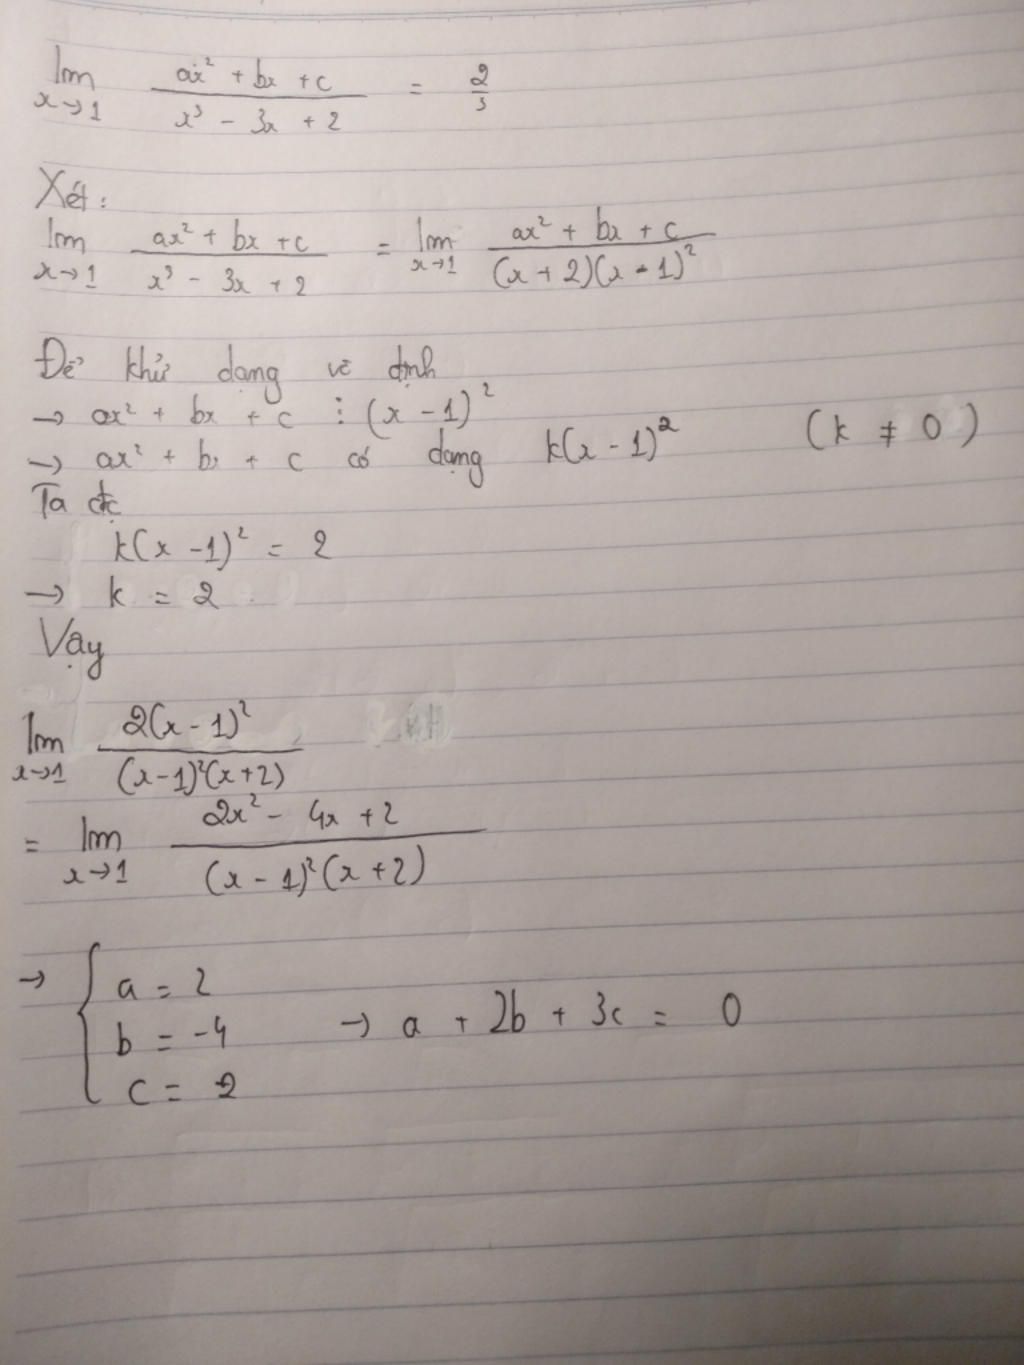 lim x→1 (ax² + bx + c)/(x³ - 3x + 2) = 2/3
Xét:
lim x→1 (ax² + bx + c)/(x³ - 3x + 2) = lim x→1 (ax² + bx + c)/((x + 2)(x - 1)²)
Để khử dạng vô định
→ ax² + bx + c ⋮ (x - 1)²
→ ax² + bx + c có dạng k(x - 1)² (k ≠ 0)
Ta đc
k(x - 1)² = 2
→ k = 2
Vậy
lim x→1 2(x - 1)²/((x - 1)²(x + 2))
= lim x→1 (2x² - 4x + 2)/((x - 1)²(x + 2))
→ { a = 2
b = -4 → a + 2b + 3c = 0
c = 2